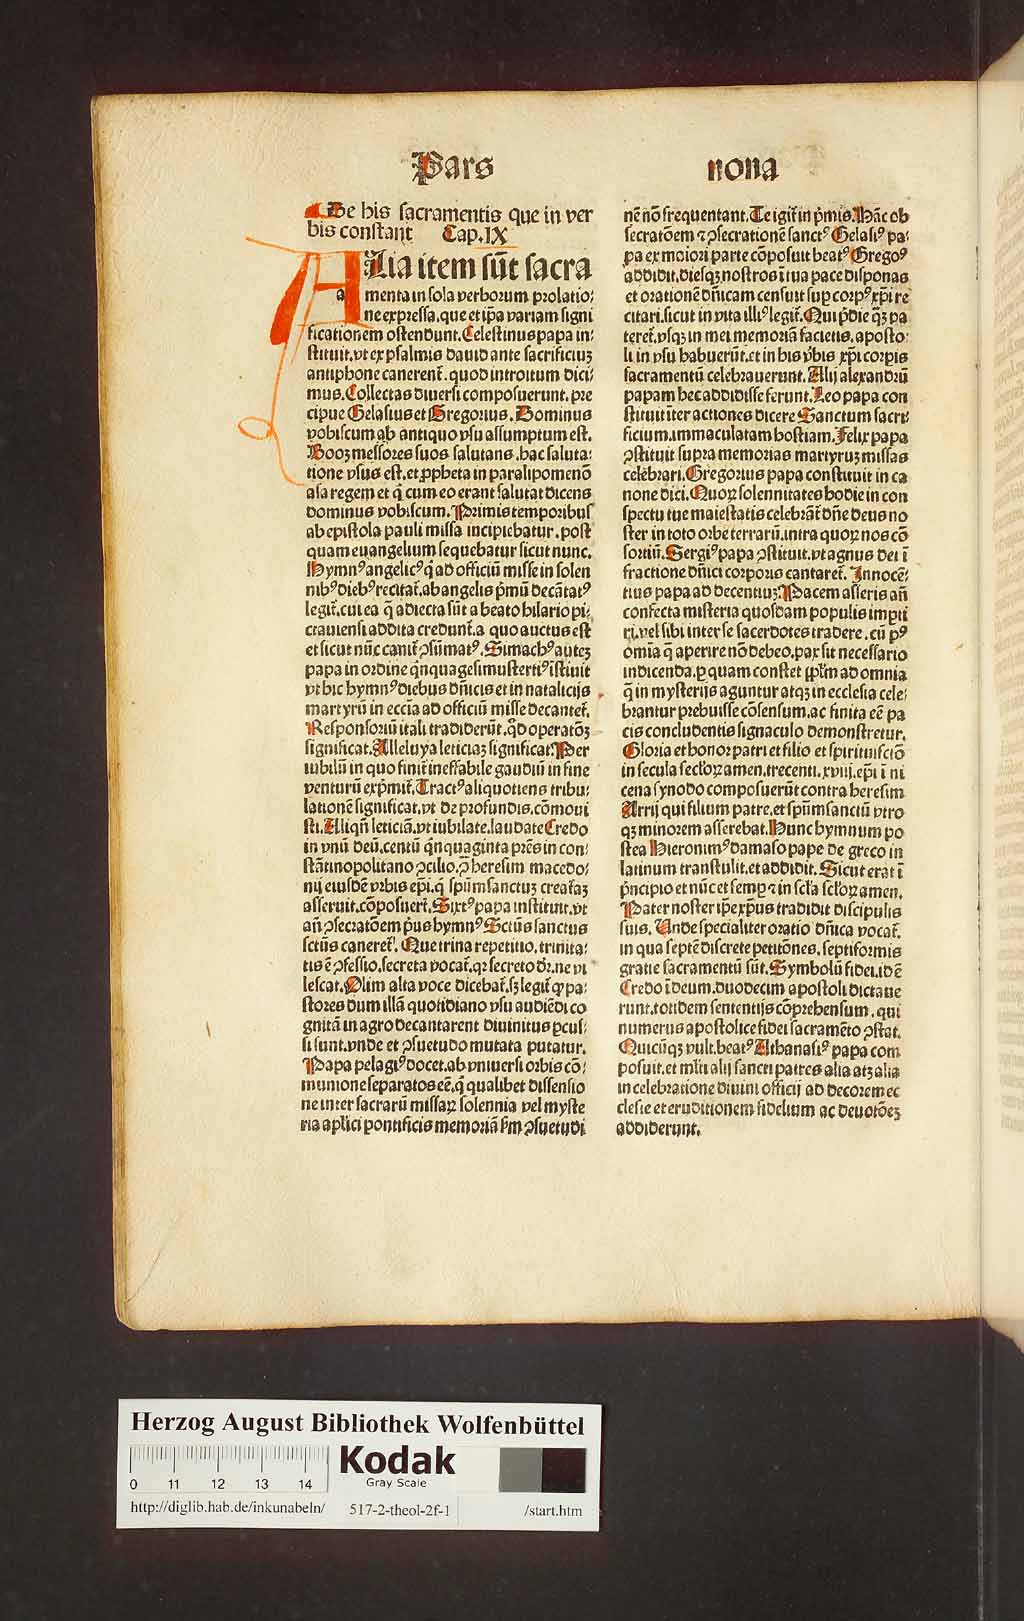 Pars nona
De his sacramentis que in ver
bis constant Cap.IX
ALia item sūt sacra
a menta in sola verborum prolatio⸗
ne expressa, que et ip̄a variam signi
ficationem ostendunt. Celestinus papa in⸗
stituit. vt ex psalmis dauid ante sacrificiuꝫ
antiphone canerent᷑. quod introitum dici⸗
mus. Collectas diuersi composuerunt. pre
cipue Gelasius et Gregorius. Dominus
vobiscum ab antiquo vsu assumptum est.
Booz messores suos salutans. hac saluta⸗
tione vsus est. et ꝓpheta in paralipomenō
asa regem et q̄ cum eo erant salutat dicens
dominus vobiscum. Primis temporibus
ab epistola pauli missa incipiebatur. post
quam euangelium sequebatur sicut nunc.
Hymnꝰ angelicꝰ q̄ ad officiū misse in solen
nibꝰ diebꝰ recitat᷑. ab angelis p̄mū decātatꝰ
legit᷑. cui ea q̄ adiecta sūt a beato hilario pi⸗
ctauiensi addita credunt᷑. a quo auctus est
et sicut nūc canit᷑ ꝯsūmatꝰ. Simachꝰ auteꝫ
papa in ordine q̄nquagesimustertiꝰ īstituit
vt hic hymnꝰ diebus dn̄icis et in natalicijs
martyrū in eccīa ad officiū misse decantet᷑.
Responsoriū itali tradiderūt. qd̓ operatōꝫ
significat. Alleluya leticiaꝫ significat. Per
iubilū in quo finit᷑ ineffabile gaudiū in fine
venturū exp̄mit᷑. Tractꝰ aliquotiens tribu⸗
lationē significat. vt de profundis. cōmoui
sti. Aliqn̄ leticiā. vt iubilate. laudate Credo
in vnū deū. centū q̄nquaginta pr̄es in con⸗
stātinopolitano ꝯcilio. ꝯ heresim macedo⸗
nij eiusdē vrbis ep̄i. q̄ spūmsanctuꝫ creat᷑aꝫ
asseruit. cōposuert᷑. Sixtꝰ papa instituit. vt
an̄ ꝯsecratōem p̄us hymnꝰ Sctūs sanctus
sctūs caneret᷑. Que trina repetitio. trinita⸗
tis ē ꝯfessio. secreta vocat᷑. qꝛ secreto dr̄. ne vi
lescat. Olim alta voce dicebat᷑. sꝫ legit᷑ ꝙ pa⸗
stores dum illā quotidiano vsu audiēdi co
gnitā in agro decantarent diuinitus ꝑcus⸗
si sunt. vnde et ꝯsuetudo mutata putatur.
Papa pelagiꝰ docet. ab vniuersi orbis cō⸗
munione separatos eē. q̄ qualibet dissensio
ne inter sacrarū missaꝝ solennia vel myste
ria apl̄ici pontificis memoriā km̄ ꝯsuetudi
nē nō frequentant. Te igit᷑ in p̄mis. Hāc ob
secratōem ⁊ ꝯsecrationē sanctꝰ Gelasiꝰ pa⸗
pa ex maiori parte cōposuit beatꝰ Gregoꝰ
addidit. diesqꝫ nostros ī tua pace disponas
et orationē dn̄icam censuit suꝑ corpꝰ xp̄i re
citari. sicut in vita illiꝰ legit᷑. Qui p̄die q̄ꝫ pa
teret᷑. vsqꝫ in mei memoriā facietis. aposto⸗
li in vsu habuerūt. et in his v̓bis xp̄i corꝑis
sacramentū celebrauerunt. Alij alexandrū
papam hec addidisse ferunt. Leo papa con
stituit īter actiones dicere Sanctum sacri⸗
ficium. immaculatam hostiam. Felix papa
ꝯstituit supra memorias martyruꝫ missas
celebrari. Gregorius papa constituit in ca
none dici. Quoꝝ solennitates hodie in con
spectu tue maiestatis celebrāt᷑ dn̄e deus no
ster in toto orbe terrarū. intra quoꝝ nos cō
sortiū. Sergiꝰ papa ꝯstituit. vt agnus dei ī
fractione dn̄ici corporis cantaret᷑. Innocē⸗
tius papa ad decentiuꝫ. Pacem asseris an̄
confecta misteria quosdam populis imptī
ri. vel sibi inter se sacerdotes tradere. cū pꝰ
omīa q̄ aperire nō debeo. pax sit necessario
indicenda. ꝑ quam constet ppl̄m ad omnia
q̄ in mysterijs aguntur atqꝫ in ecclesia cele⸗
brantur prebuisse cōsensum. ac finita eē pa
cis concludentis signaculo demonstretur.
Gloria et honor patri et filio et spirituiscīō
in secula secl̓oꝝ amen. trecenti. xviij. ep̄i ī ni
cena synodo composuerūt contra heresim
Arrij qui filium patre. et spūmsanctū vtro
qꝫ minorem asserebat. Hunc hymnum po
stea Hieronimꝰ damaso pape de greco in
latinum transtulit. et addidit. Sicut erat ī
p̄ncipio et nūc et semꝑ ⁊ in scl̓a scl̓oꝝ amen.
Pater noster ip̄e xp̄us tradidit discipulis
suis. Unde specialiter oratio dn̄ica vocat᷑.
in qua septē discrete petitōnes. septiformis
gratie sacramentū sūt. Symbolū fidei. id ē
Credo ī deum. duodecim apostoli dictaue
runt. totidem sententijs cōprehensum. qui
numerus apostolice fidei sacramēto ꝯstat.
Quicūqꝫ vult. beatꝰ Athanasiꝰ papa com
posuit. et ml̓ti alij sancti patres alia atqꝫ alia
in celebratione diuini officij ad decorem ec
clesie et eruditionem fidelium ac deuotōeꝫ
addiderunt.
Herzog August Bibliothek Wolfenbüttel
0 11 12 13 14
Kodak
Gray Scale
http://diglib.hab.de/inkunabeln/ 517-2-theol-2f-1 /start.htm